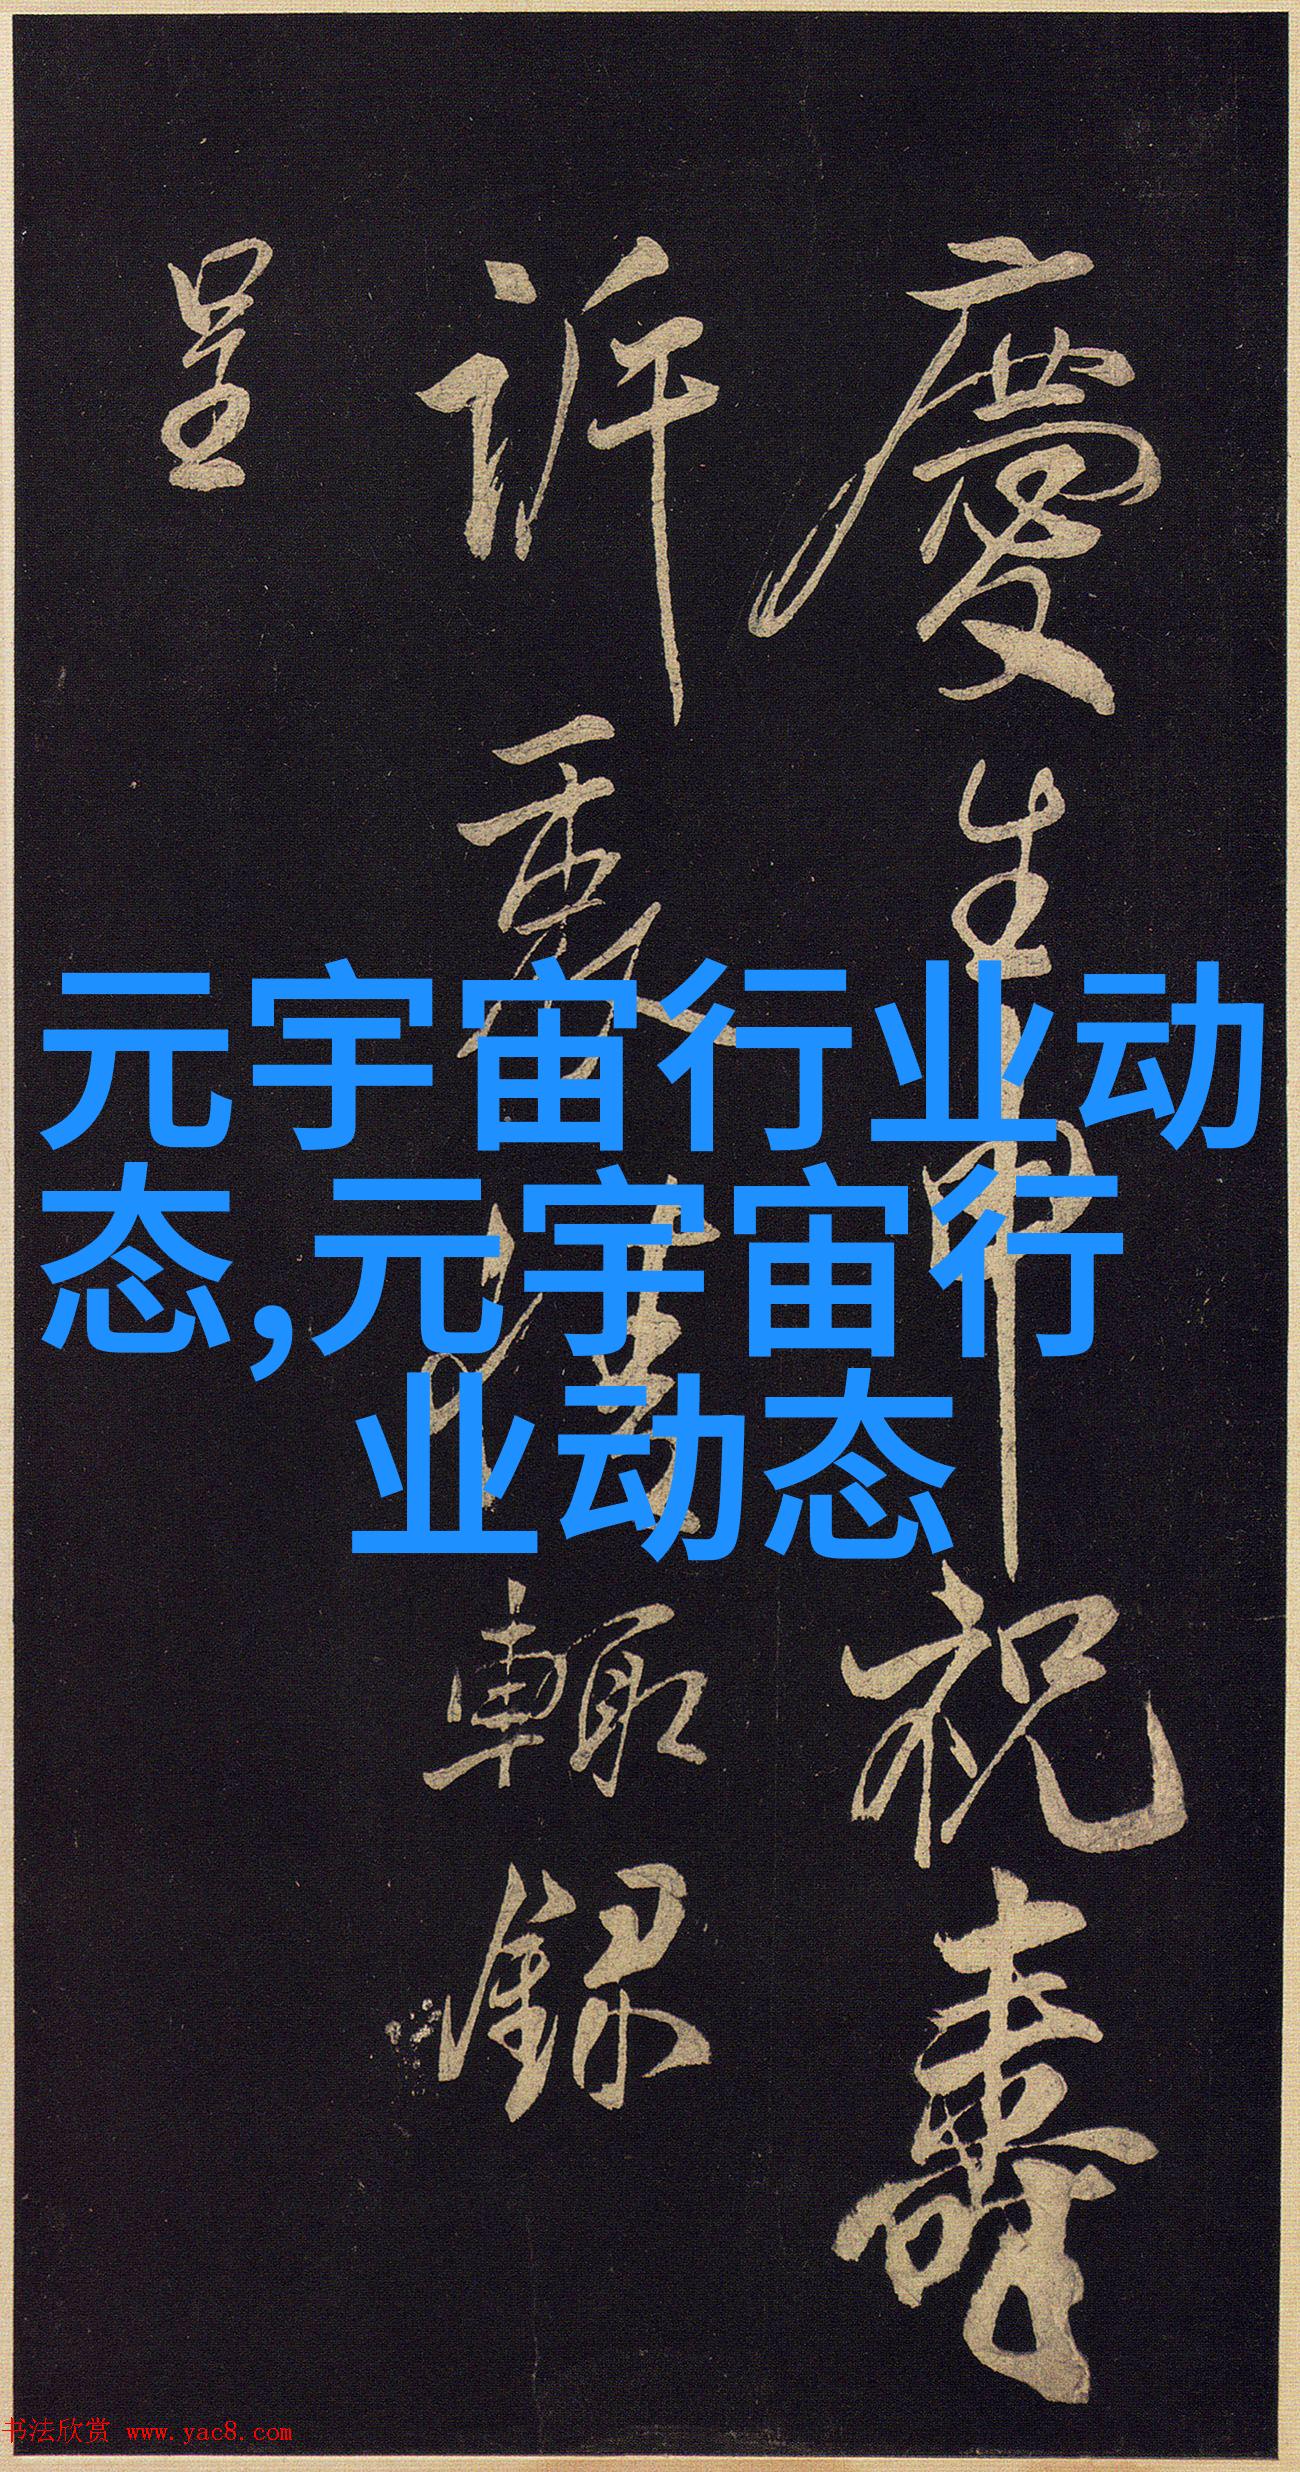 慶生申祝壽
訢輒錄
呈
元宇宙行业动
态,元宇宙行
业动态
书法欣赏 www.yac8.com